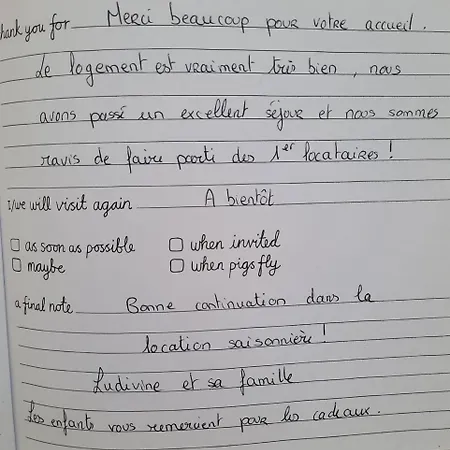 thank you for Merci beaucoup pour votre accueil.
Le logement est vraiment très bien, nous
avons passé un excellent séjour et nous sommes
ravis de faire parti des 1er locataires !
I/we will visit again A bientôt
☐ as soon as possible ☐ when invited
☐ maybe ☐ when pigs fly
a final note Bonne continuation dans la
location saisonnière !
Ludivine et sa famille
Les enfants vous remercient pour les cadeaux.